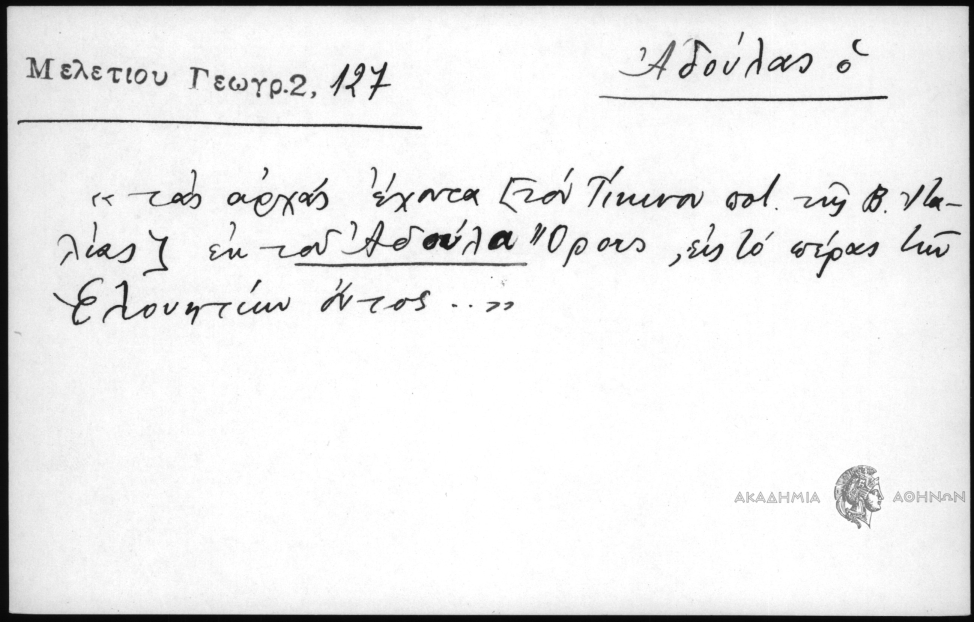 Μελετιου Γεωγρ.2, 127
Ἀδούλας ὁ
« τὰς ἀρχάς ἔχοντα [τόν Τίκινον ποτ. τῆς Β. Ἰτα-
λίας] ἐκ τοῦ Ἀδούλα Ὄρους, εἰς τό πέρας τῶν
Ἑλουητίων ὄντος ... »
ΑΚΑΔΗΜΙΑ ΑΘΗΝΩΝ